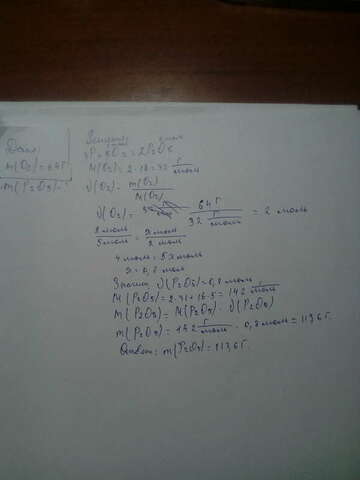 Дано:
m(O₂)=64г
m(P₂O₅)-
Решение
x моль
4P+5O₂=2P₂O₅
M(O₂)=2·16=32 г/моль
ν(O₂)=m(O₂)/M(O₂)
ν(O₂)= 64 г/32 г/моль = 2 моль
2 моль/5 моль = x моль/2 моль
4 моль=5x моль
x=0,8 моль
Значит ν(P₂O₅)=0,8 моль
M(P₂O₅)=2·31+16·5=142 г/моль
M(P₂O₅)=M(P₂O₅)·ν(P₂O₅)
m(P₂O₅)=142 г/моль·0,8 моль=113,6 г.
Ответ: m(P₂O₅)=113,6г.